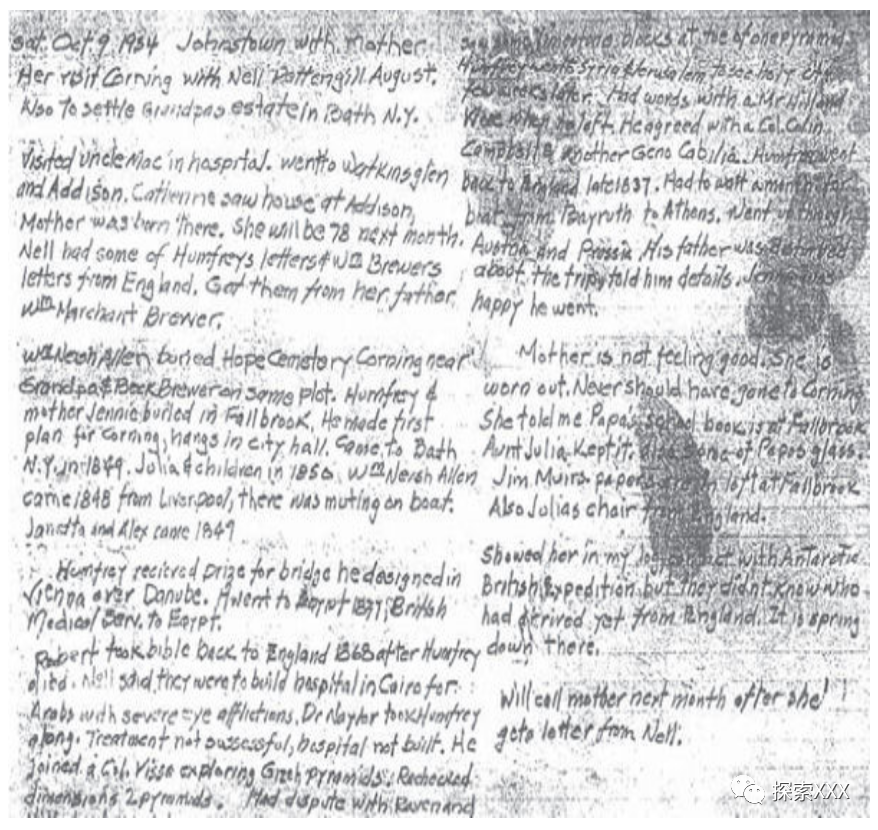 Sat. Oct. 9 1954 Johnstown with Mother
Her visit Corning with Nell Pattengill August.
Also to settle Grandpas estate in Bath N.Y.
Visited Uncle Mac in hospital. went to Watkins glen
and Addison. Catienne saw house at Addison,
Mother was born there. She will be 78 next month.
Nell had some of Humfreys letters & Wm Brewers
letters from England. Got them from her father
Wm Marchant Brewer.
Wm Nersh Allen buried Hope Cemetory Corning near
Grandpa & Beck Brewer on same plot. Humfrey &
mother Jennie buried in Fallbrook. He made first
plan for Corning, hangs in city hall. Came to Bath
N.Y. in 1849. Julia & children in 1850. Wm Nersh Allen
came 1848 from Liverpool, there was muting on boat.
Janetta and Alex came 1849
Humfrey recieved prize for bridge he designed in
Vienna over Danube. H went to Egypt 1837, British
Medical Serv. to Egypt.
Robert took bible back to England 1868 after Humfrey
died. Nell said they were to build hospital in Cairo for
Arabs with severe eye afflictions. Dr Naylor took Humfrey
along. Treatment not sussessful, hospital not built. He
joined a Col. Visse exploring Gizeh pyramids. Rechecked
dimensions 2 pyramids. Had dispute with Raven and
blocks at toe of one pyramid
Humfrey went Syria & Jerusalem to see holy city
few weeks later. Had words with a Mr Hill and
Visse when he left. He agreed with a Col. Colin
Campbell & another Geno Cabilia. Humfrey went
back to England late 1837. Had to wait a month for
boat from Bayruth to Athens. Went up through
Austria and Prossia. His father was
about the trip, told him details. Jennie was
happy he went.
Mother is not feeling good. She is
worn out. Never should have gone to Corning
She told me Papas school book is at Fallbrook
Aunt Julia kept it. Also some of Papos glass.
Jim Muirs papers are in loft at Fallbrook
Also Julias chair from England.
Showed her in my with Antarctic
British Expedition but they didnt know who
had arrived yet from England. It is spring
down there.
Will call mother next month after she
gets letter from Nell.
探索XXX